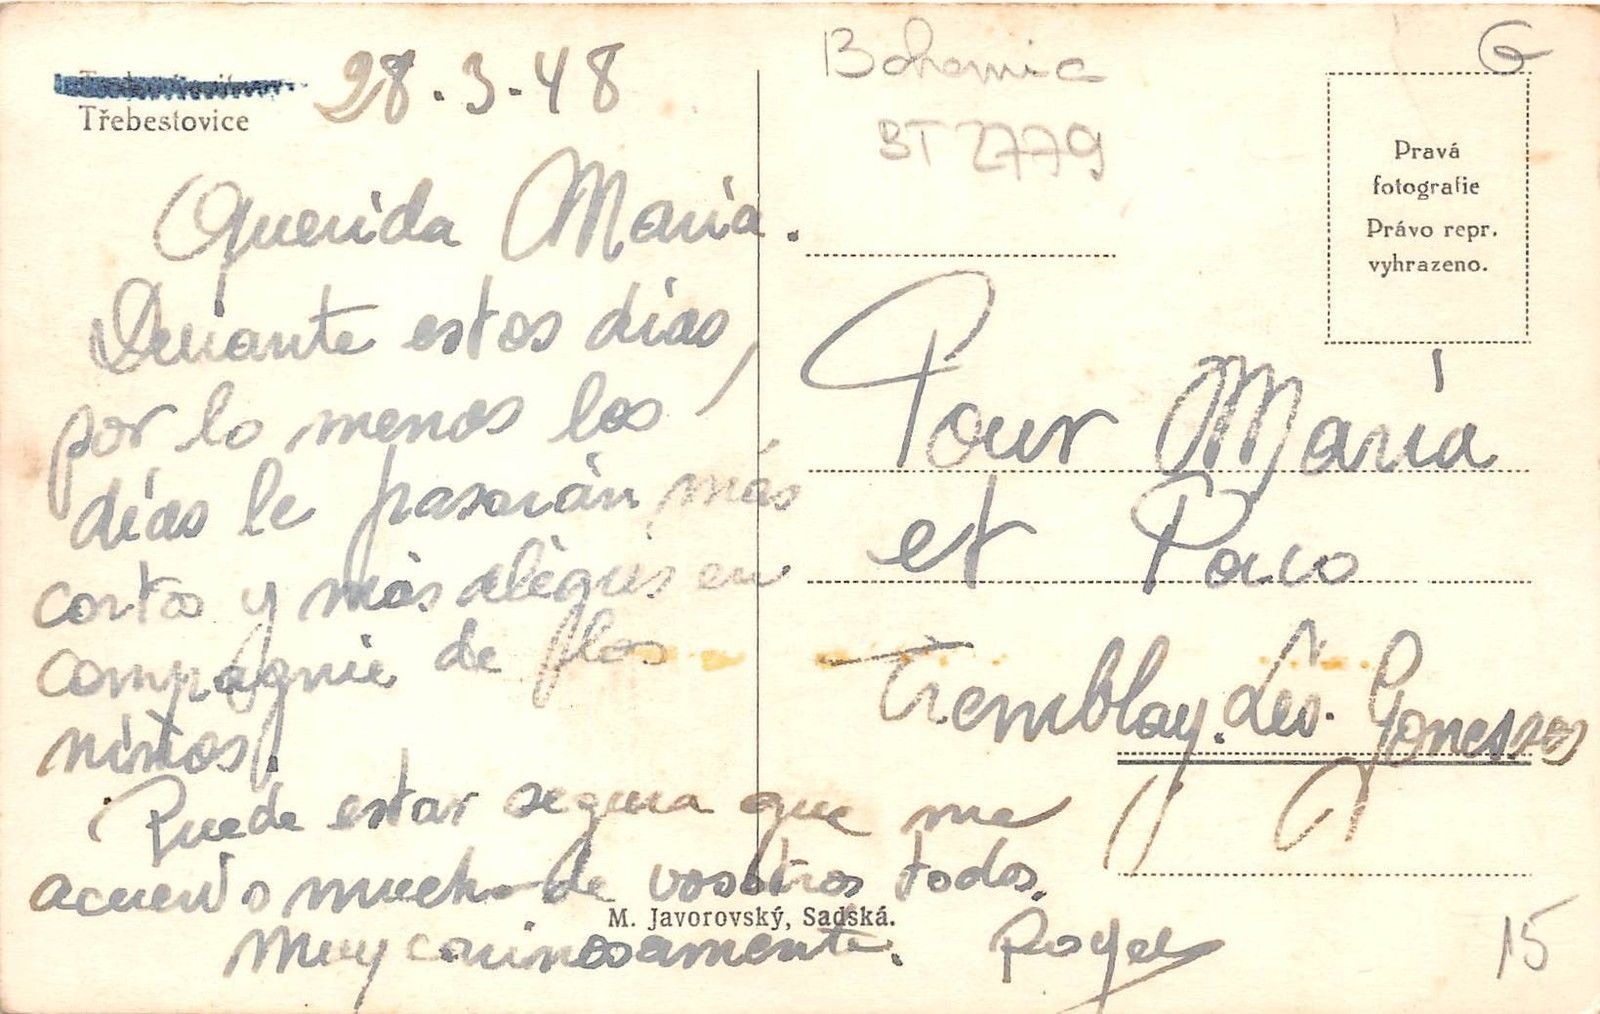 Třebestovice
28.3.48
Querida Maria.
Durante estos días,
por lo menos los
días le pasarán más
cortos y más alègres en
compagnie de los
niños.
Puede estar segura que me
acuerdo mucho de vosotros todos.
Muy carinosamente. Roger
M. Javorovský, Sadská.
Bohemia
BT 2779
G
Pravá
fotografie
Právo repr.
vyhrazeno.
Pour María
et Paco
Tremblay. Lès. Gonesses
15